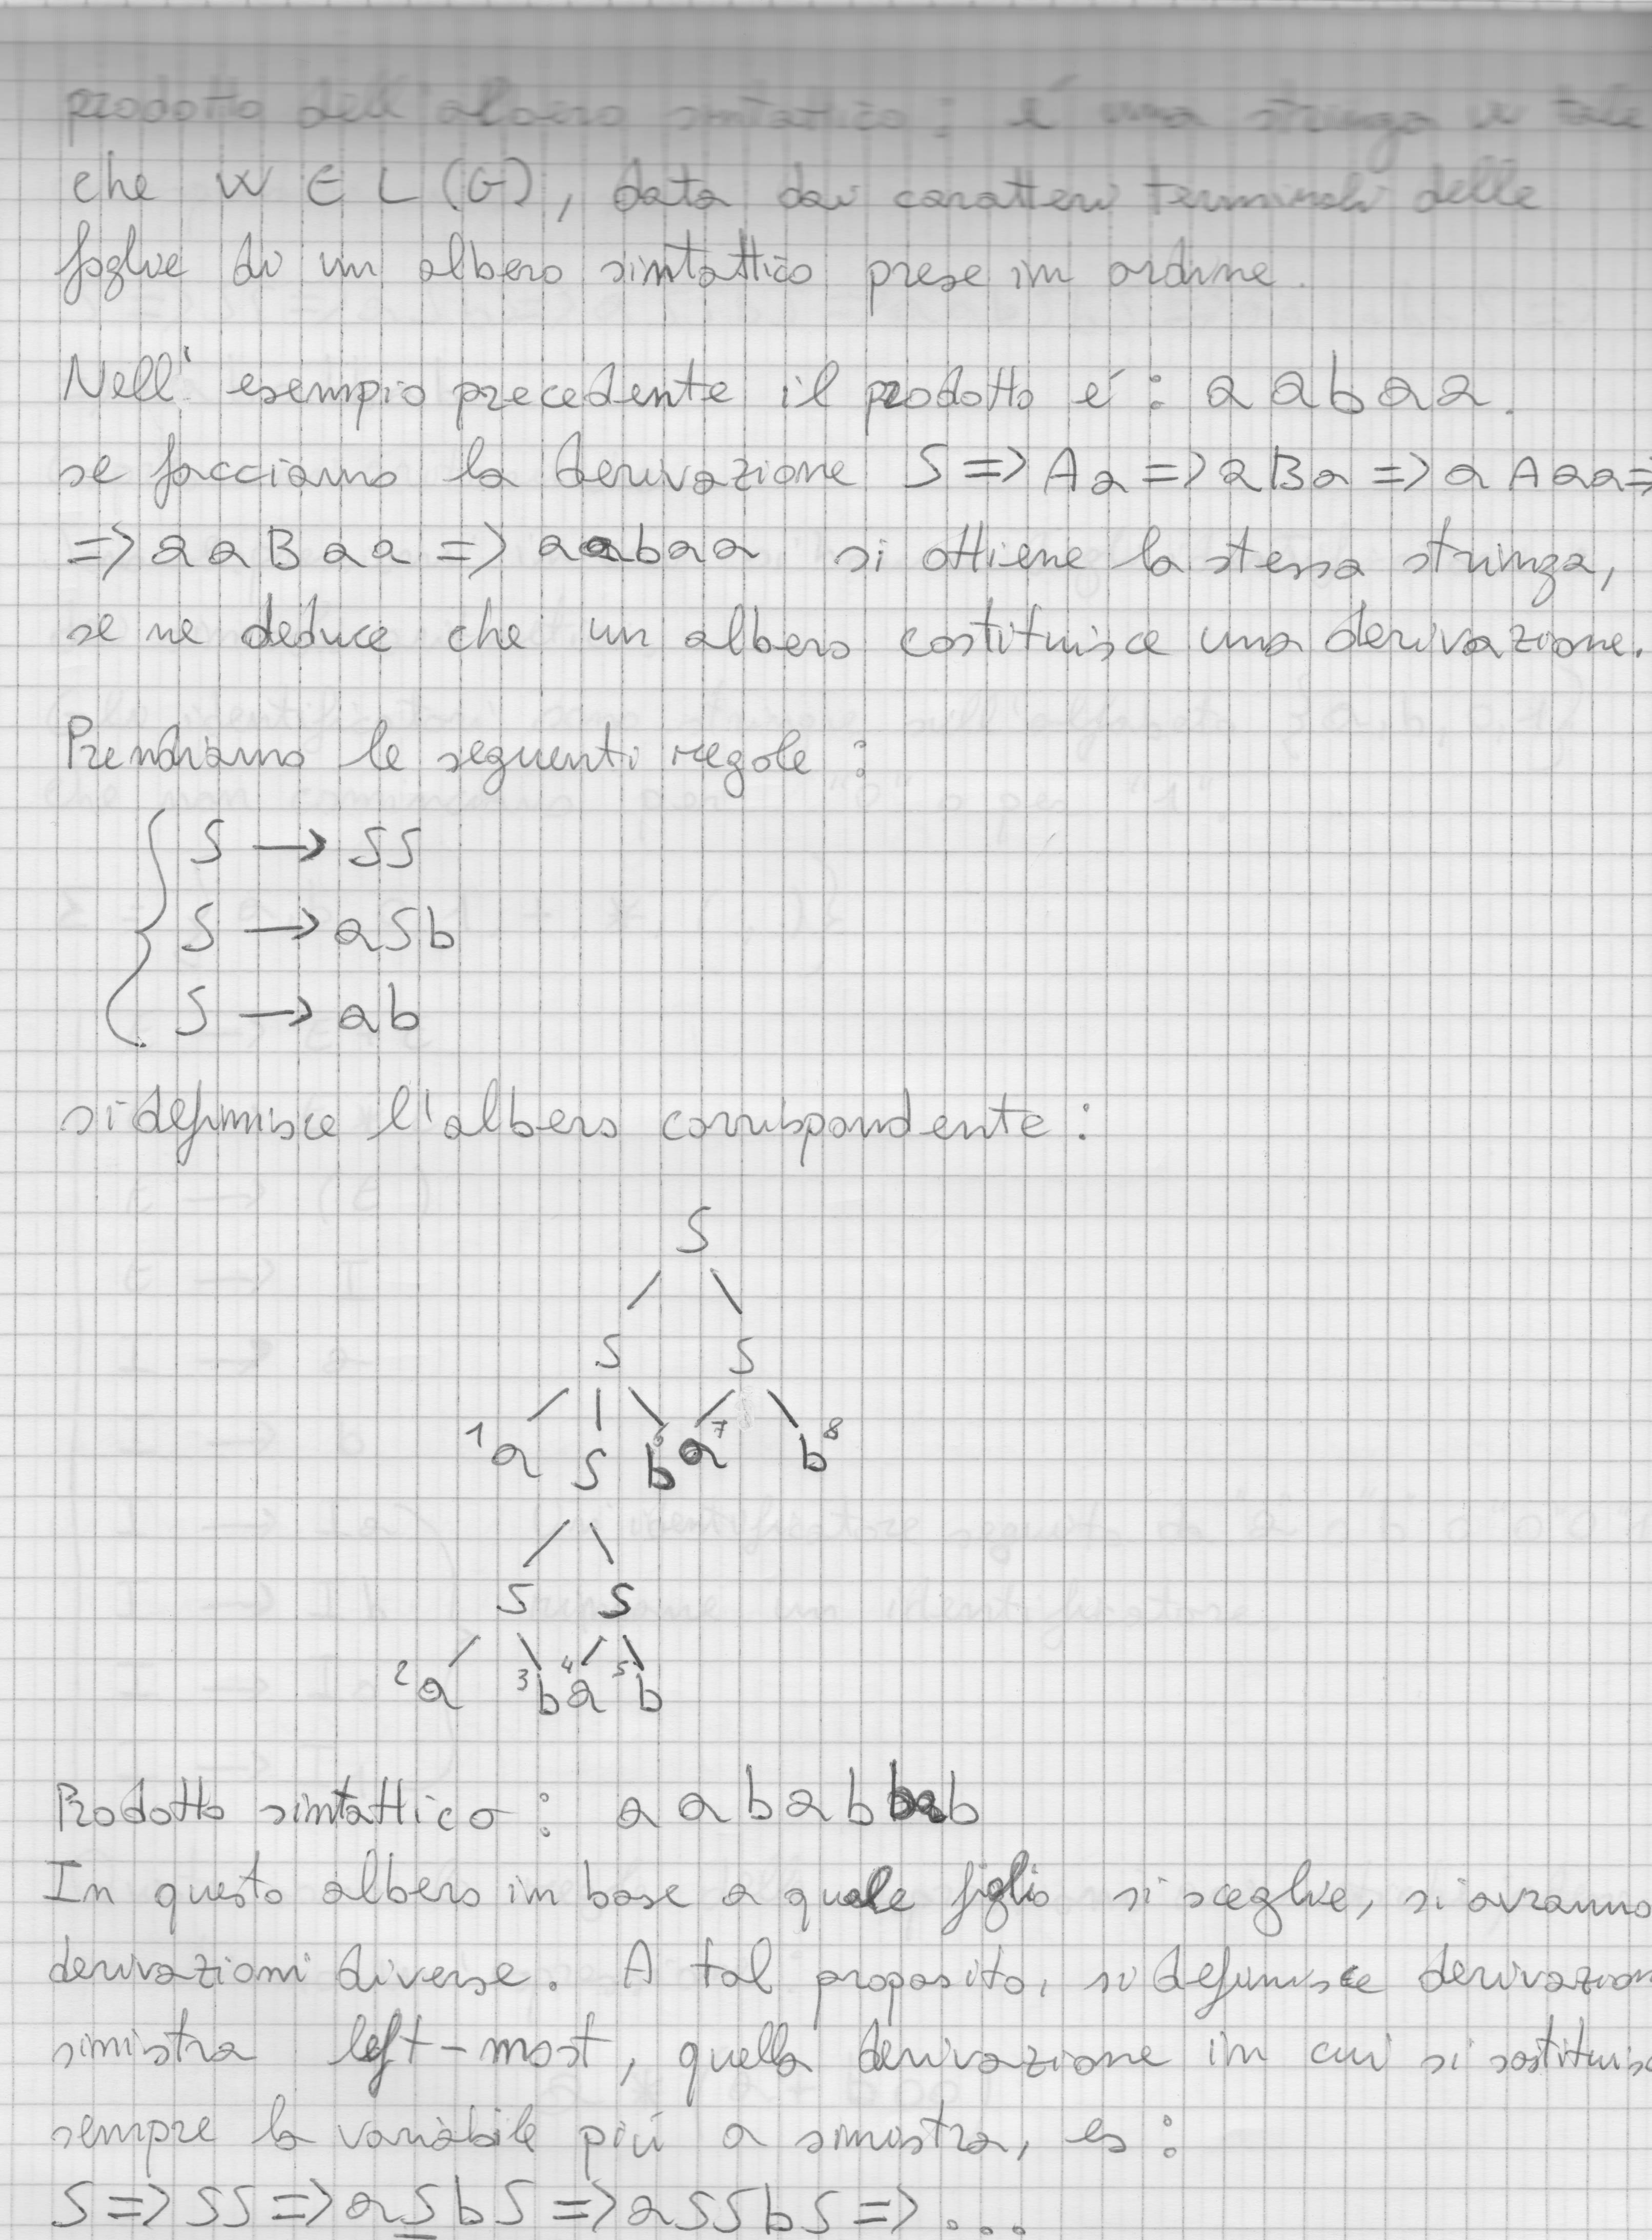 prodotto dell'albero sintattico: é una stringa w tale
che W ∈ L(G), data dai caratteri terminali delle
foglie di un albero sintattico prese in ordine.
Nell' esempio precedente il prodotto é: aabaa.
se facciamo la derivazione S => Aa => aBa => aAaa =>
=> aaBaa => aabaa si ottiene la stessa stringa,
se ne deduce che un albero costituisce una derivazione.
Prendiamo le seguenti regole:
S → SS
S → aSb
S → ab
si definisce l'albero corrispondente:
S
S S
1 a S b 6 a 7 b 8
S S
2 a 3 b 4 a 5 b
Prodotto sintattico: aababbab
In questo albero in base a quale figlio si sceglie, si avranno
derivazioni diverse. A tal proposito, si definisce derivazion
sinistra left-most, quella derivazione in cui si sostituisc
sempre la variabile piú a sinistra, es:
S => SS => aSbS => aSSbS => ...